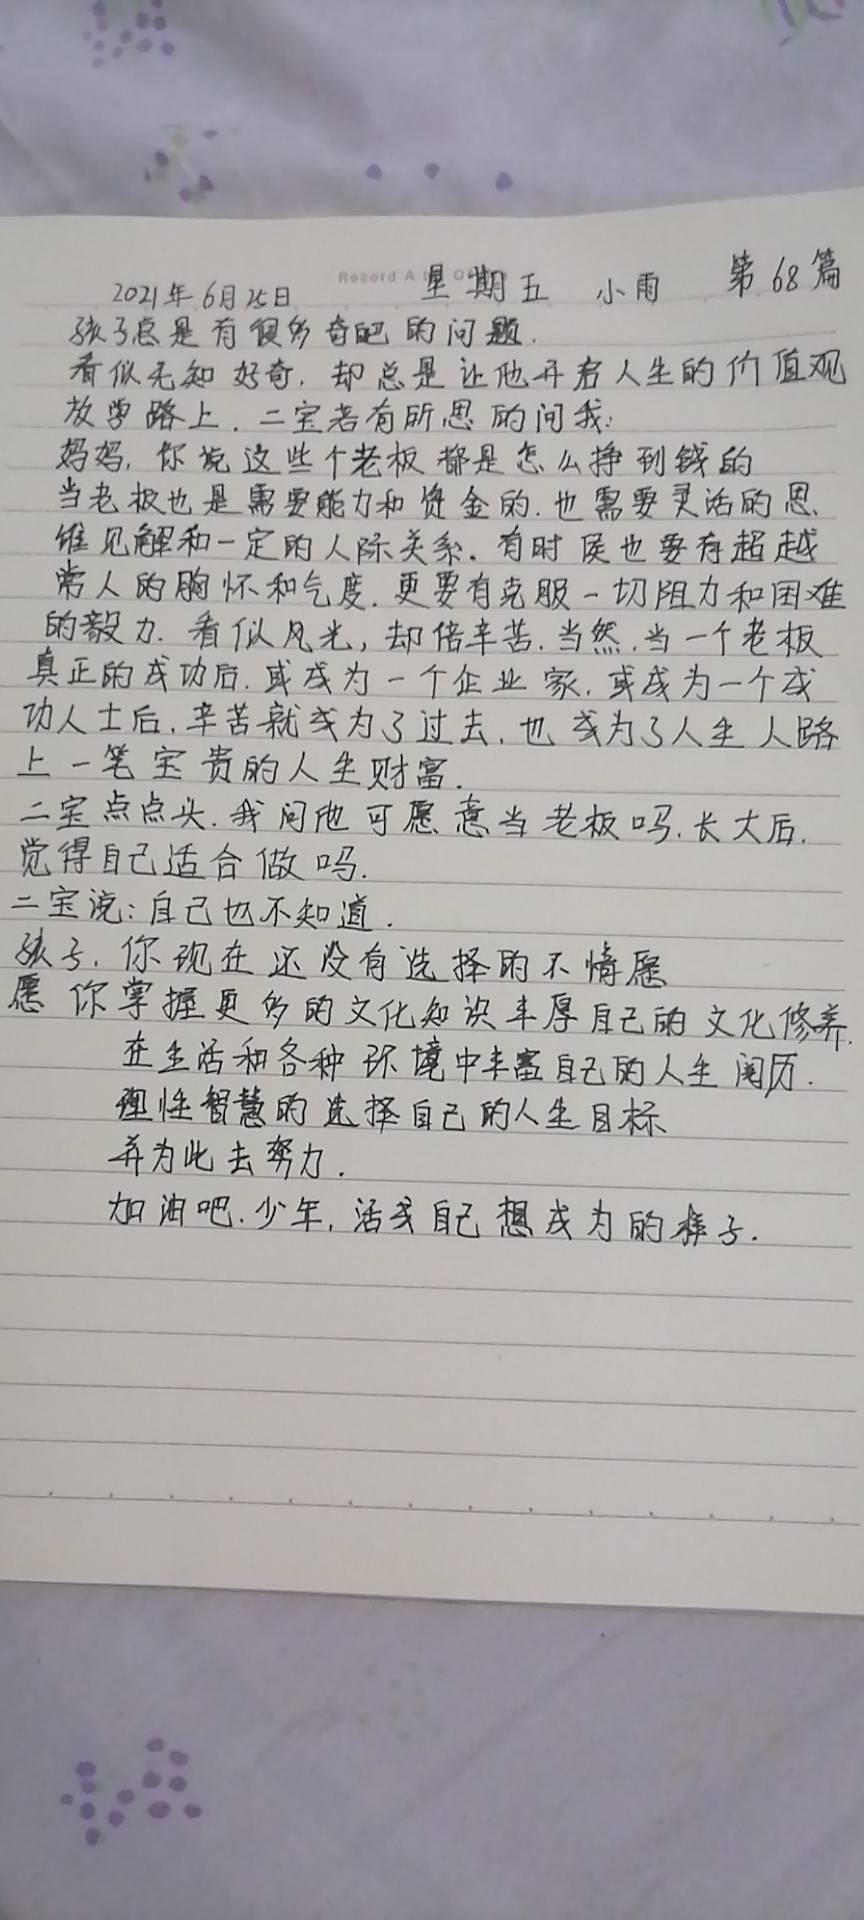 Record A
2021年6月25日 星期五 小雨 第68篇
孩子总是有很多奇吧的问题.
看似无知好奇,却总是让他开启人生的价值观
放学路上.二宝若有所思的问我:
妈妈,你说这些个老板都是怎么挣到钱的
当老板也是需要能力和资金的.也需要灵活的思
维见解和一定的人际关系.有时侯也要有超越
常人的胸怀和气度.更要有克服一切阻力和困难
的毅力.看似风光,却倍辛苦.当然.当一个老板
真正的成功后.或成为一个企业家.或成为一个成
功人士后.辛苦就成为了过去.也成为了人生人路
上一笔宝贵的人生财富.
二宝点点头.我问他可愿意当老板吗.长大后.
觉得自己适合做吗.
二宝说:自己也不知道.
孩子.你现在还没有选择的不情愿
愿你掌握更多的文化知识丰厚自己的文化修养.
在生活和各种环境中丰富自己的人生阅历.
理性智慧的选择自己的人生目标
并为此去努力.
加油吧.少年,活成自己想成为的样子.